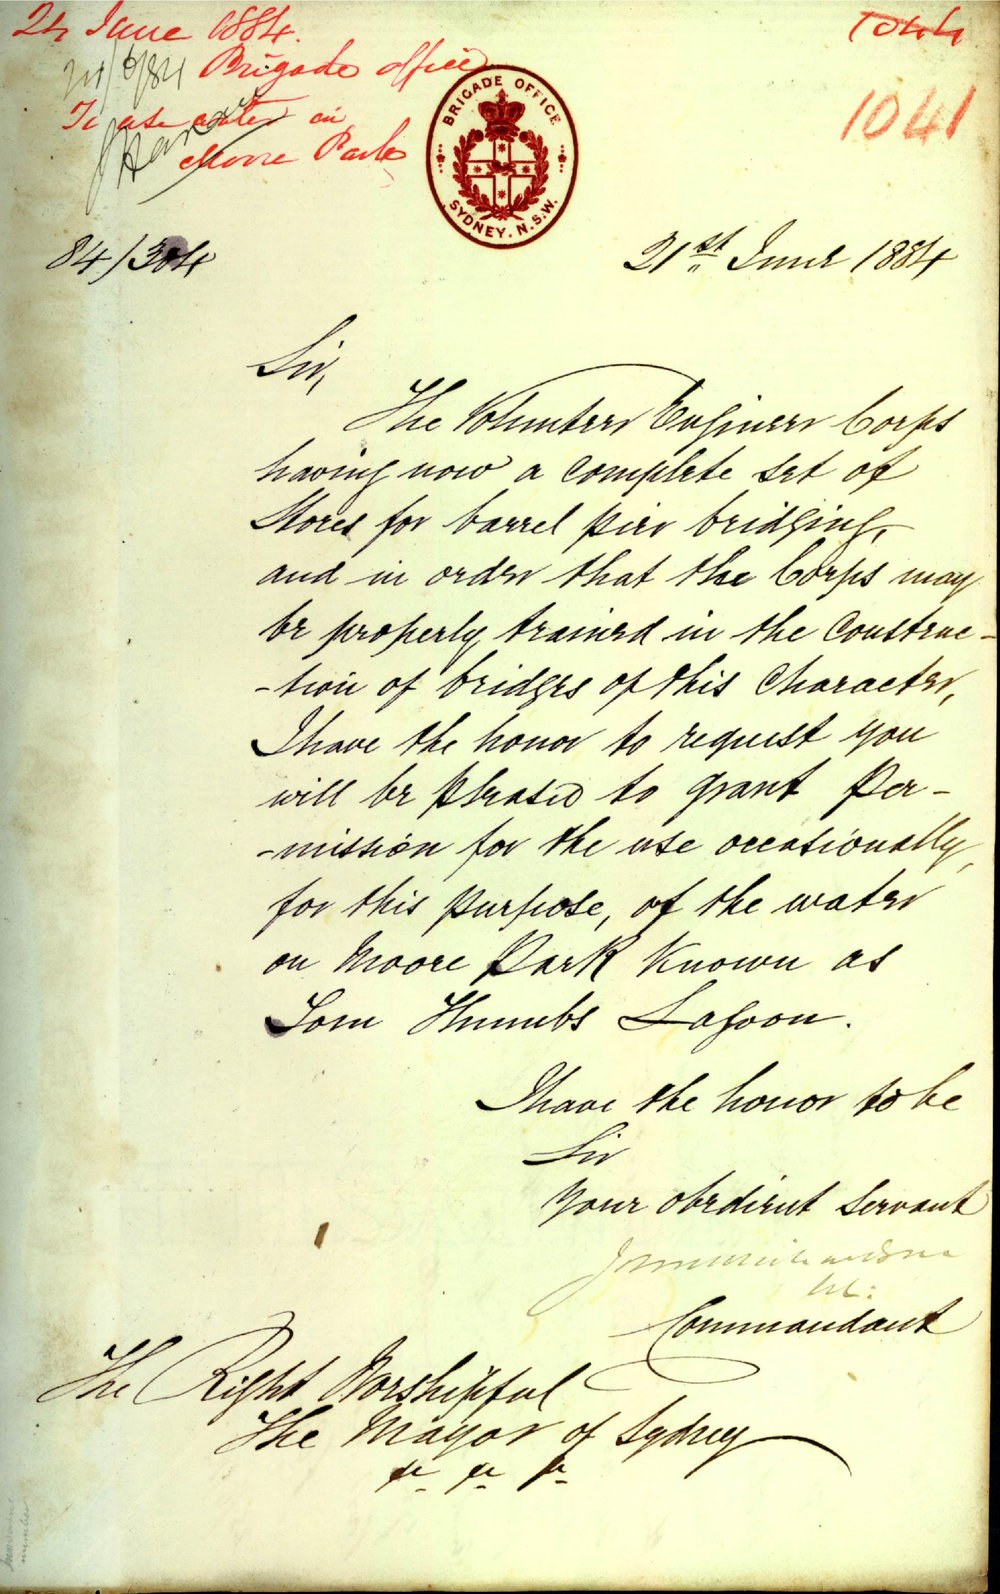 24 June 1884.
Brigade office
To use water in
Moore Park
24/6/84
1044
1041
BRIGADE OFFICE
SYDNEY. N.S.W.
84/304
21st June 1884
Sir,
The Volunteer Engineer Corps
having now a complete set of
Stores for barrel pier bridging,
and in order that the Corps may
be properly trained in the Construc-
-tion of bridges of this Character,
I have the honor to request you
will be pleased to grant Per-
-mission for the use occasionally,
for this purpose, of the water
on Moore Park Known as
Tom Thumbs Lagoon.
I have the honor to be
Sir
Your obedient Servant
Commandant
The Right Worshipful
The Mayor of Sydney